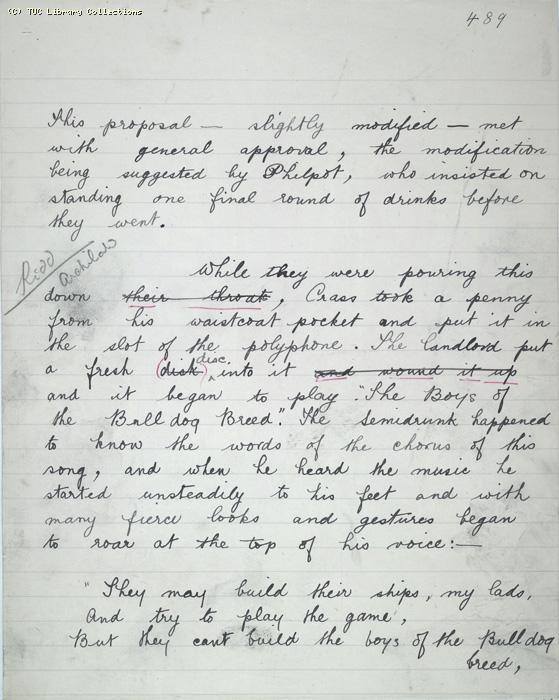 (C) TUC Library Collections
489
This proposal — slightly modified — met
with general approval, the modification
being suggested by Philpot, who insisted on
standing one final round of drinks before
they went.
While they were pouring this
down their throats, Crass took a penny
from his waistcoat pocket and put it in
the slot of the polyphone. The landlord put
a fresh (disk disc, into it and wound it up
and it began to play "The Boys of
the Bull dog Breed." The Semidrunk happened
to know the words of the chorus of this
song, and when he heard the music he
started unsteadily to his feet and with
many fierce looks and gestures began
to roar at the top of his voice:—
"They may build their ships, my lads,
And try to play the game,
But they can't build the boys of the Bull dog
breed,